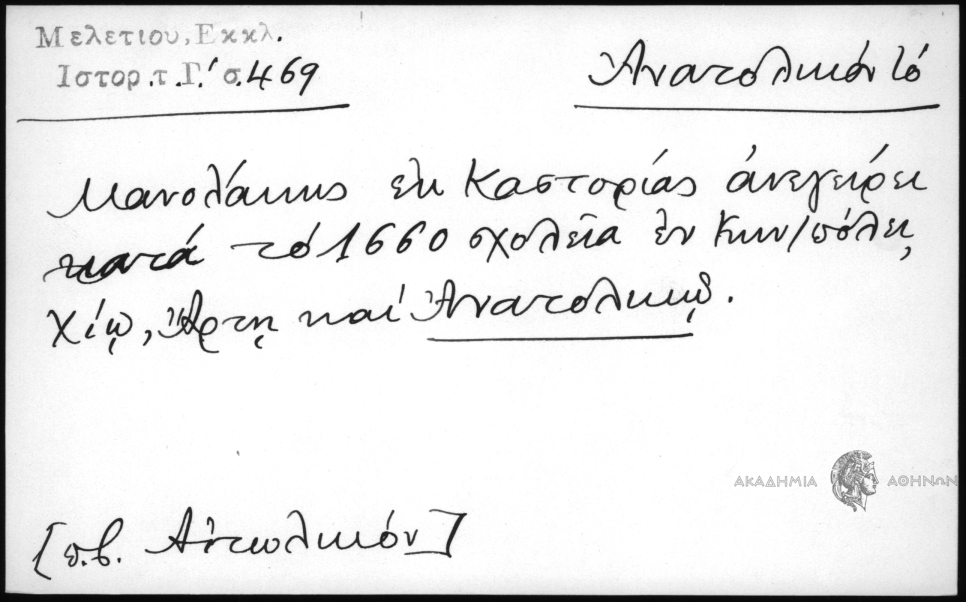 Μελετίου, Εκκλ.
Ιστορ. τ. Γ.' σ. 469
Ἀνατολικόν τό
Μανολάκης ἐκ Καστορίας ἀνεγείρει
κατά τό 1660 σχολεῖα ἐν Κων/πόλει,
Χίῳ, Ἄρτῃ καί Ἀνατολικῷ.
ΑΚΑΔΗΜΙΑ ΑΘΗΝΩΝ
[π.β. Αἰτωλικόν]